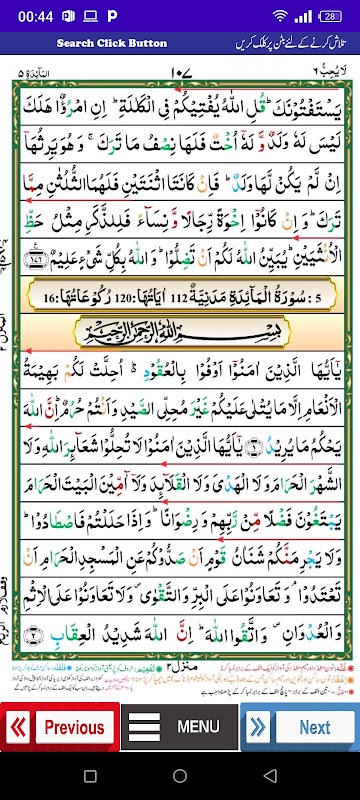 00:44
28
Search Click Button
تلاش کرنے کے لئے بٹن پر کلک کریں
لَا يُحِبُّ ٦
١٠٧
الْمَآئِدَة ٥
يَسْتَفْتُوْنَكَ ؕ قُلِ اللّٰهُ يُفْتِيْكُمْ فِى الْكَلٰلَةِ ؕ اِنِ امْرُؤٌا هَلَكَ
لَيْسَ لَهٗ وَلَدٌ وَّ لَهٗۤ اُخْتٌ فَلَهَا نِصْفُ مَا تَرَكَ ۚ وَ هُوَ يَرِثُهَاۤ
اِنْ لَّمْ يَكُنْ لَّهَا وَلَدٌ ؕ فَاِنْ كَانَتَا اثْنَتَيْنِ فَلَهُمَا الثُّلُثٰنِ مِمَّا
تَرَكَ ؕ وَ اِنْ كَانُوْۤا اِخْوَةً رِّجَالًا وَّ نِسَآءً فَلِلذَّكَرِ مِثْلُ حَظِّ
الْاُنْثَيَيْنِ ؕ يُبَيِّنُ اللّٰهُ لَكُمْ اَنْ تَضِلُّوْا ؕ وَ اللّٰهُ بِكُلِّ شَىْءٍ عَلِيْمٌ ۝١٧٦
5 : سُوْرَةُ الْمَآئِدَةِ مَدَنِيَّةٌ 112 اٰيَاتُهَا:120 رُكُوْعَاتُهَا:16
بِسْمِ اللّٰهِ الرَّحْمٰنِ الرَّحِيْمِ
يٰۤاَيُّهَا الَّذِيْنَ اٰمَنُوْۤا اَوْفُوْا بِالْعُقُوْدِ ؕ اُحِلَّتْ لَكُمْ بَهِيْمَةُ
الْاَنْعَامِ اِلَّا مَا يُتْلٰى عَلَيْكُمْ غَيْرَ مُحِلِّى الصَّيْدِ وَ اَنْتُمْ حُرُمٌ ؕ اِنَّ اللّٰهَ
يَحْكُمُ مَا يُرِيْدُ ۝١ يٰۤاَيُّهَا الَّذِيْنَ اٰمَنُوْا لَا تُحِلُّوْا شَعَآئِرَ اللّٰهِ وَ لَا
الشَّهْرَ الْحَرَامَ وَ لَا الْهَدْىَ وَ لَا الْقَلَآئِدَ وَ لَاۤ آٰمِّيْنَ الْبَيْتَ الْحَرَامَ
يَبْتَغُوْنَ فَضْلًا مِّنْ رَّبِّهِمْ وَ رِضْوَانًا ؕ وَ اِذَا حَلَلْتُمْ فَاصْطَادُوْا ؕ
وَ لَا يَجْرِمَنَّكُمْ شَنَاٰنُ قَوْمٍ اَنْ صَدُّوْكُمْ عَنِ الْمَسْجِدِ الْحَرَامِ اَنْ
تَعْتَدُوْا ۘ وَ تَعَاوَنُوْا عَلَى الْبِرِّ وَ التَّقْوٰى ۪ وَ لَا تَعَاوَنُوْا عَلَى الْاِثْمِ
وَ الْعُدْوَانِ ۪ وَ اتَّقُوا اللّٰهَ ؕ اِنَّ اللّٰهَ شَدِيْدُ الْعِقَابِ ۝٢
منزل ٢
Previous
MENU
Next